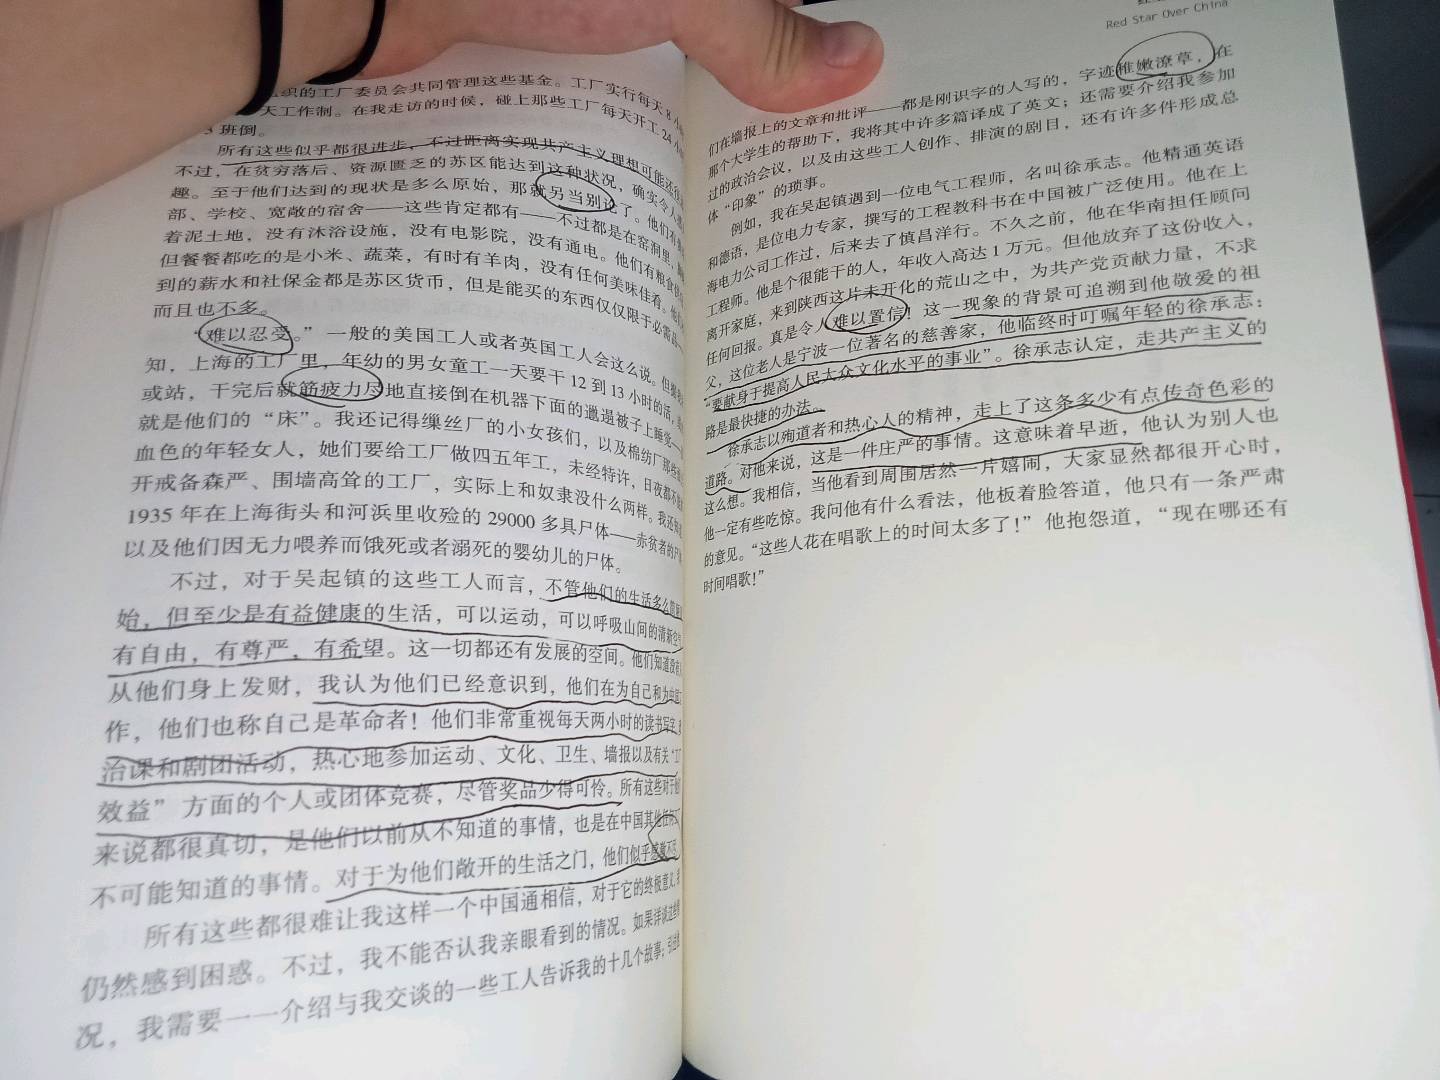 织的工厂委员会共同管理这些基金。工厂实行每天 8 小
天工作制。在我走访的时候，碰上那些工厂每天开工 24 小
3 班倒。
所有这些似乎都很进步，不过距离实现共产主义理想可能还很
不过，在贫穷落后、资源匮乏的苏区能达到这种状况，确实令人
趣。至于他们达到的现状是多么原始，那就另当别论了。他们有
部、学校、宽敞的宿舍——这些肯定都有——不过都是在窑洞里，
着泥土地，没有沐浴设施，没有电影院，没有通电。他们有粮食
但餐餐都吃的是小米、蔬菜，有时有羊肉，没有任何美味佳肴。
到的薪水和社保金都是苏区货币，但是能买的东西仅仅限于必需品
而且也不多。
“难以忍受。”一般的美国工人或者英国工人会这么说。但
知，上海的工厂里，年幼的男女童工一天要干 12 到 13 小时的活，
或站，干完后就筋疲力尽地直接倒在机器下面的邋遢被子上睡觉——
就是他们的“床”。我还记得缫丝厂的小女孩们，以及棉纺厂那些
血色的年轻女人，她们要给工厂做四五年工，未经特许，日夜都不
开戒备森严、围墙高耸的工厂，实际上和奴隶没什么两样。我还
1935 年在上海街头和河浜里收殓的 29000 多具尸体——赤贫者的尸
以及他们因无力喂养而饿死或者溺死的婴幼儿的尸体。
不过，对于吴起镇的这些工人而言，不管他们的生活多么
始，但至少是有益健康的生活，可以运动，可以呼吸山间的清新空气
有自由，有尊严，有希望。这一切都还有发展的空间。他们知道没有
从他们身上发财，我认为他们已经意识到，他们在为自己和为中国
作，他们也称自己是革命者！他们非常重视每天两小时的读书写字、
治课和剧团活动，热心地参加运动、文化、卫生、墙报以及有关“工
效益”方面的个人或团体竞赛，尽管奖品少得可怜。所有这些对于他
来说都很真切，是他们以前从不知道的事情，也是在中国其他任何
不可能知道的事情。对于为他们敞开的生活之门，他们似乎感激不尽。
所有这些都很难让我这样一个中国通相信，对于它的终极意义，
仍然感到困惑。不过，我不能否认我亲眼看到的情况。如果详谈这些
况，我需要一一介绍与我交谈的一些工人告诉我的十几个故事；引述
Red Star Over China
们在墙报上的文章和批评——都是刚识字的人写的，字迹稚嫩潦草，在
那个大学生的帮助下，我将其中许多篇译成了英文；还需要介绍我参加
过的政治会议，以及由这些工人创作、排演的剧目，还有许多件形成总
体“印象”的琐事。
例如，我在吴起镇遇到一位电气工程师，名叫徐承志。他精通英语
和德语，是位电力专家，撰写的工程教科书在中国被广泛使用。他在上
海电力公司工作过，后来去了慎昌洋行。不久之前，他在华南担任顾问
工程师。他是个很能干的人，年收入高达 1 万元。但他放弃了这份收入，
离开家庭，来到陕西这片未开化的荒山之中，为共产党贡献力量，不求
任何回报。真是令人难以置信！这一现象的背景可追溯到他敬爱的祖
父，这位老人是宁波一位著名的慈善家，他临终时叮嘱年轻的徐承志：
“要献身于提高人民大众文化水平的事业”。徐承志认定，走共产主义的
路是最快捷的办法。
徐承志以殉道者和热心人的精神，走上了这条多少有点传奇色彩的
道路。对他来说，这是一件庄严的事情。这意味着早逝，他认为别人也
这么想。我相信，当他看到周围居然一片嬉闹，大家显然都很开心时，
他一定有些吃惊。我问他有什么看法，他板着脸答道，他只有一条严肃
的意见。“这些人花在唱歌上的时间太多了！”他抱怨道，“现在哪还有
时间唱歌！”